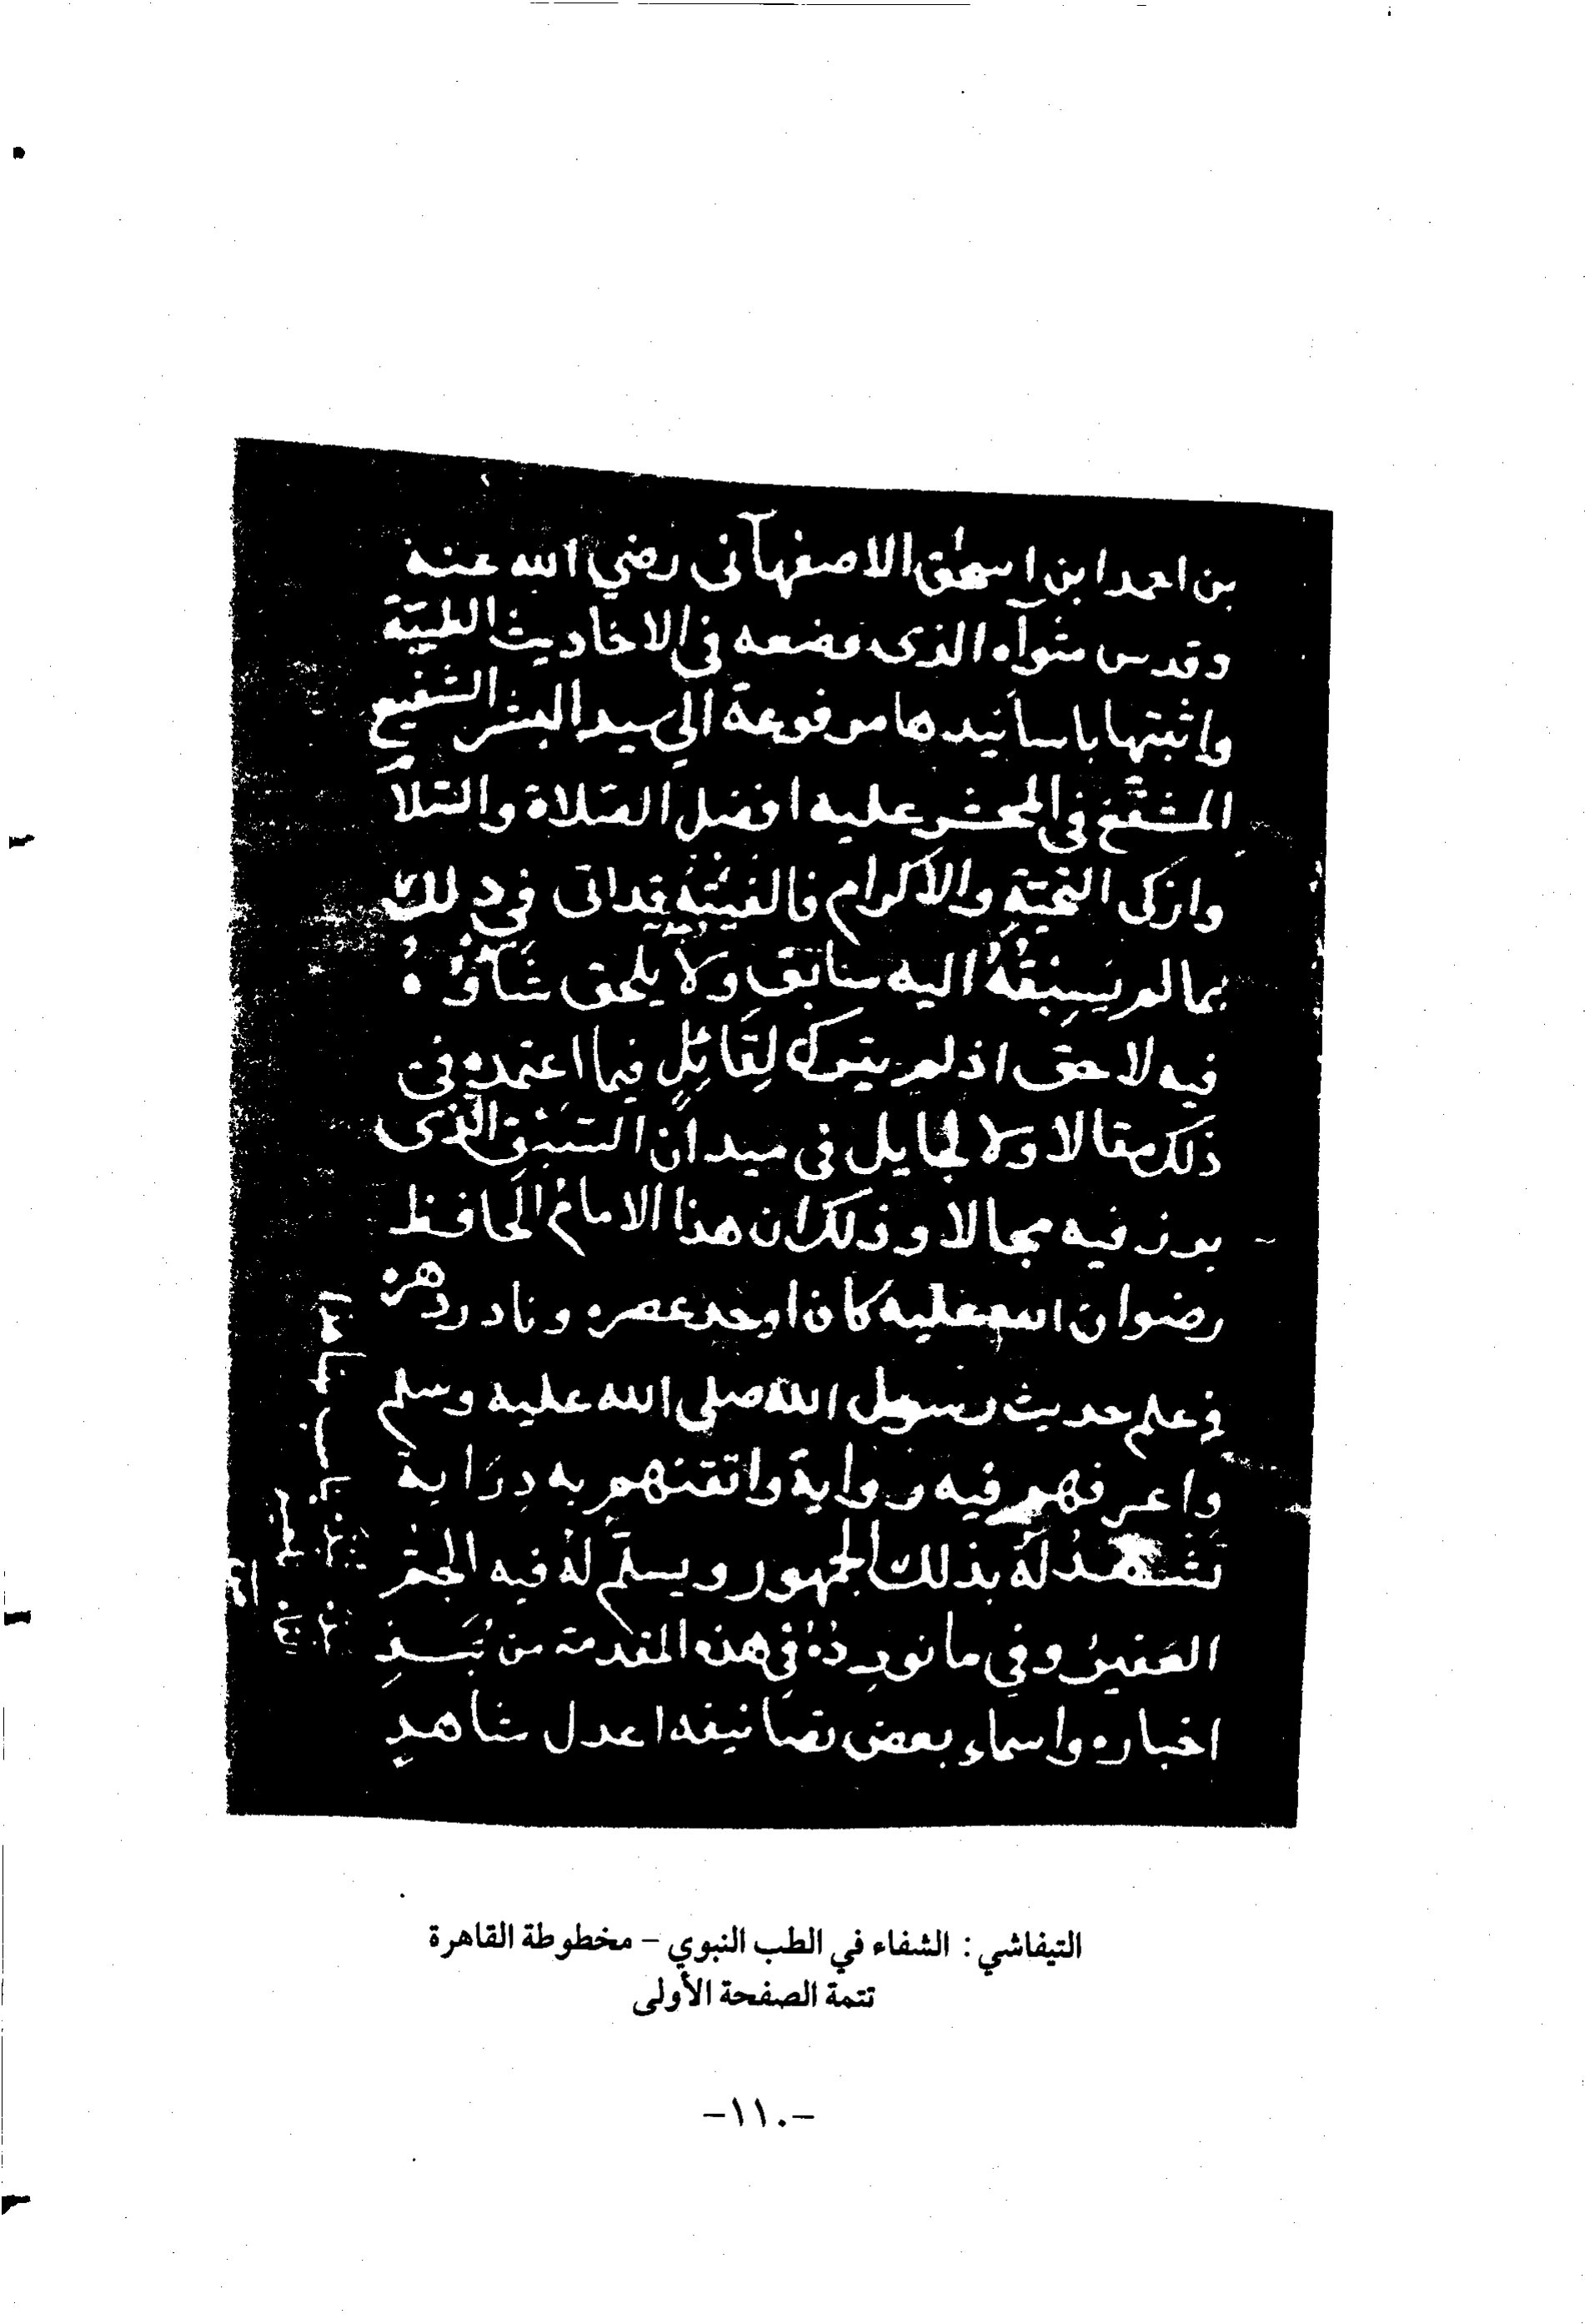 بن احمد ابن اسحق الاصفهآنى رضي الله عنه
وقدس مثوآه الذى وضعه فى الاحاديث الطبيّة
واثبتها باسانيدها مرفوعة الى سيد البشر الشفيع
المشفّع فى المحشر عليه افضل الصّلاة والسّلام
وازكى التحيّة والاكرام فالفيتُهُ قد اتى فى ذلك
بما لم يَسبِقْهُ اليه سابق ولا يلحق شَاْوُهُ
فيه لاحق اذ لم يترك لِقَائِلٍ فيما اعتمده فى
ذلك مقالا ولا لجايل فى ميدان السَّبْق الّذى
برز فيه مجالا وذلك ان هذا الامام الحافظ
رضوان الله عليه كان اوحد عصره ونادر دهره
فى علم حديث رسول الله صلى الله عليه وسلم
واعرفهم فيه رواية واتقنهم به دِرَاية
تشهد لَهُ بذلك الجمهور ويسلّم لهُ فيه الجمّ
الغفيرُ وفى ما نورِدُهُ فى هذه المقدمة من نُبَـذِ
اخباره واسماء بعض تصَانيفه اعدل شاهدٍ
التيفاشي : الشفاء في الطب النبوي – مخطوطة القاهرة
تتمة الصفحة الأولى
–١١٠–